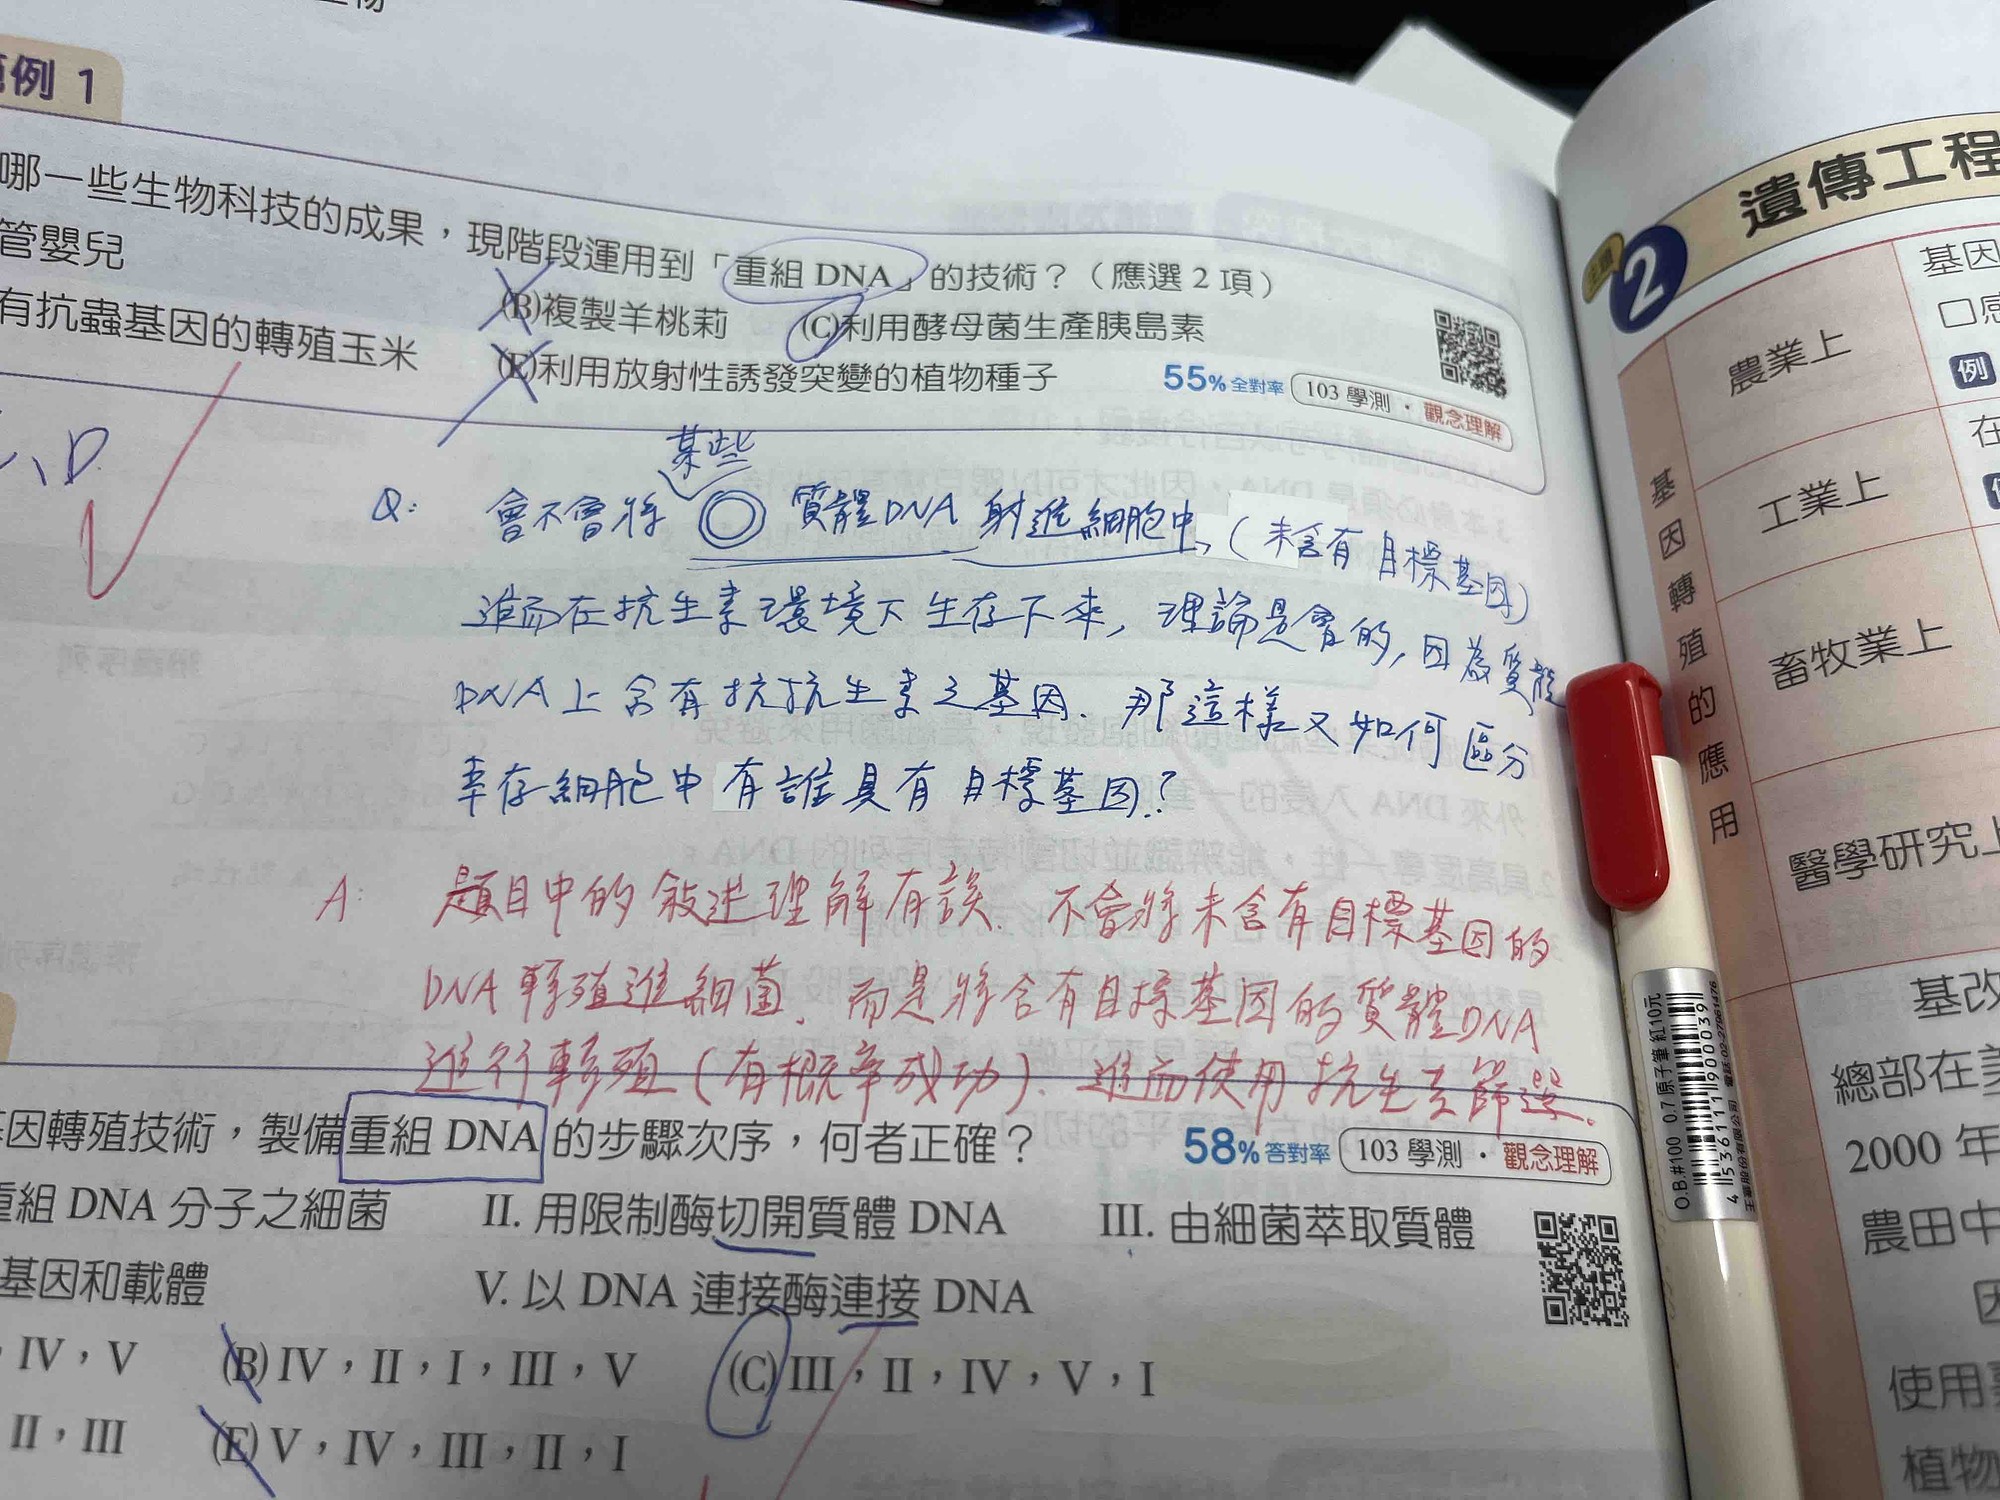 例 1
哪一些生物科技的成果，現階段運用到「重組 DNA」的技術？（應選 2 項）
管嬰兒
(B)複製羊桃莉
(C)利用酵母菌生產胰島素
有抗蟲基因的轉殖玉米
(E)利用放射性誘發突變的植物種子
55% 全對率
103 學測・觀念理解
、D.
某些
Q: 會不會將 質體DNA 射進細胞中,（未含有目標基因）
進而在抗生素環境下生存下來, 理論是會的, 因為質體
DNA上含有抗抗生素之基因. 那這樣又如何區分
幸存細胞中有誰具有目標基因?
A: 題目中的敘述理解有誤. 不會將未含有目標基因的
DNA轉殖進細菌, 而是將含有目標基因的質體DNA
進行轉殖(有概率成功). 進而使用抗生素篩選.
因轉殖技術，製備重組 DNA 的步驟次序，何者正確？
58% 答對率
103 學測・觀念理解
重組 DNA 分子之細菌
II. 用限制酶切開質體 DNA
III. 由細菌萃取質體
基因和載體
V. 以 DNA 連接酶連接 DNA
，IV，V
(B) IV，II，I，III，V
(C) III，II，IV，V，I
II，III
(E) V，IV，III，II，I
2
遺傳工程
基因轉殖的應用
農業上
基因
□感
例
工業上
在
畜牧業上
醫學研究上
基改
總部在美
2000 年
農田中
因
使用
植物
O.B.#100 0.7 原子筆 紅10元
4 536111 900039
王華股份有限公司 電話 02-27961476